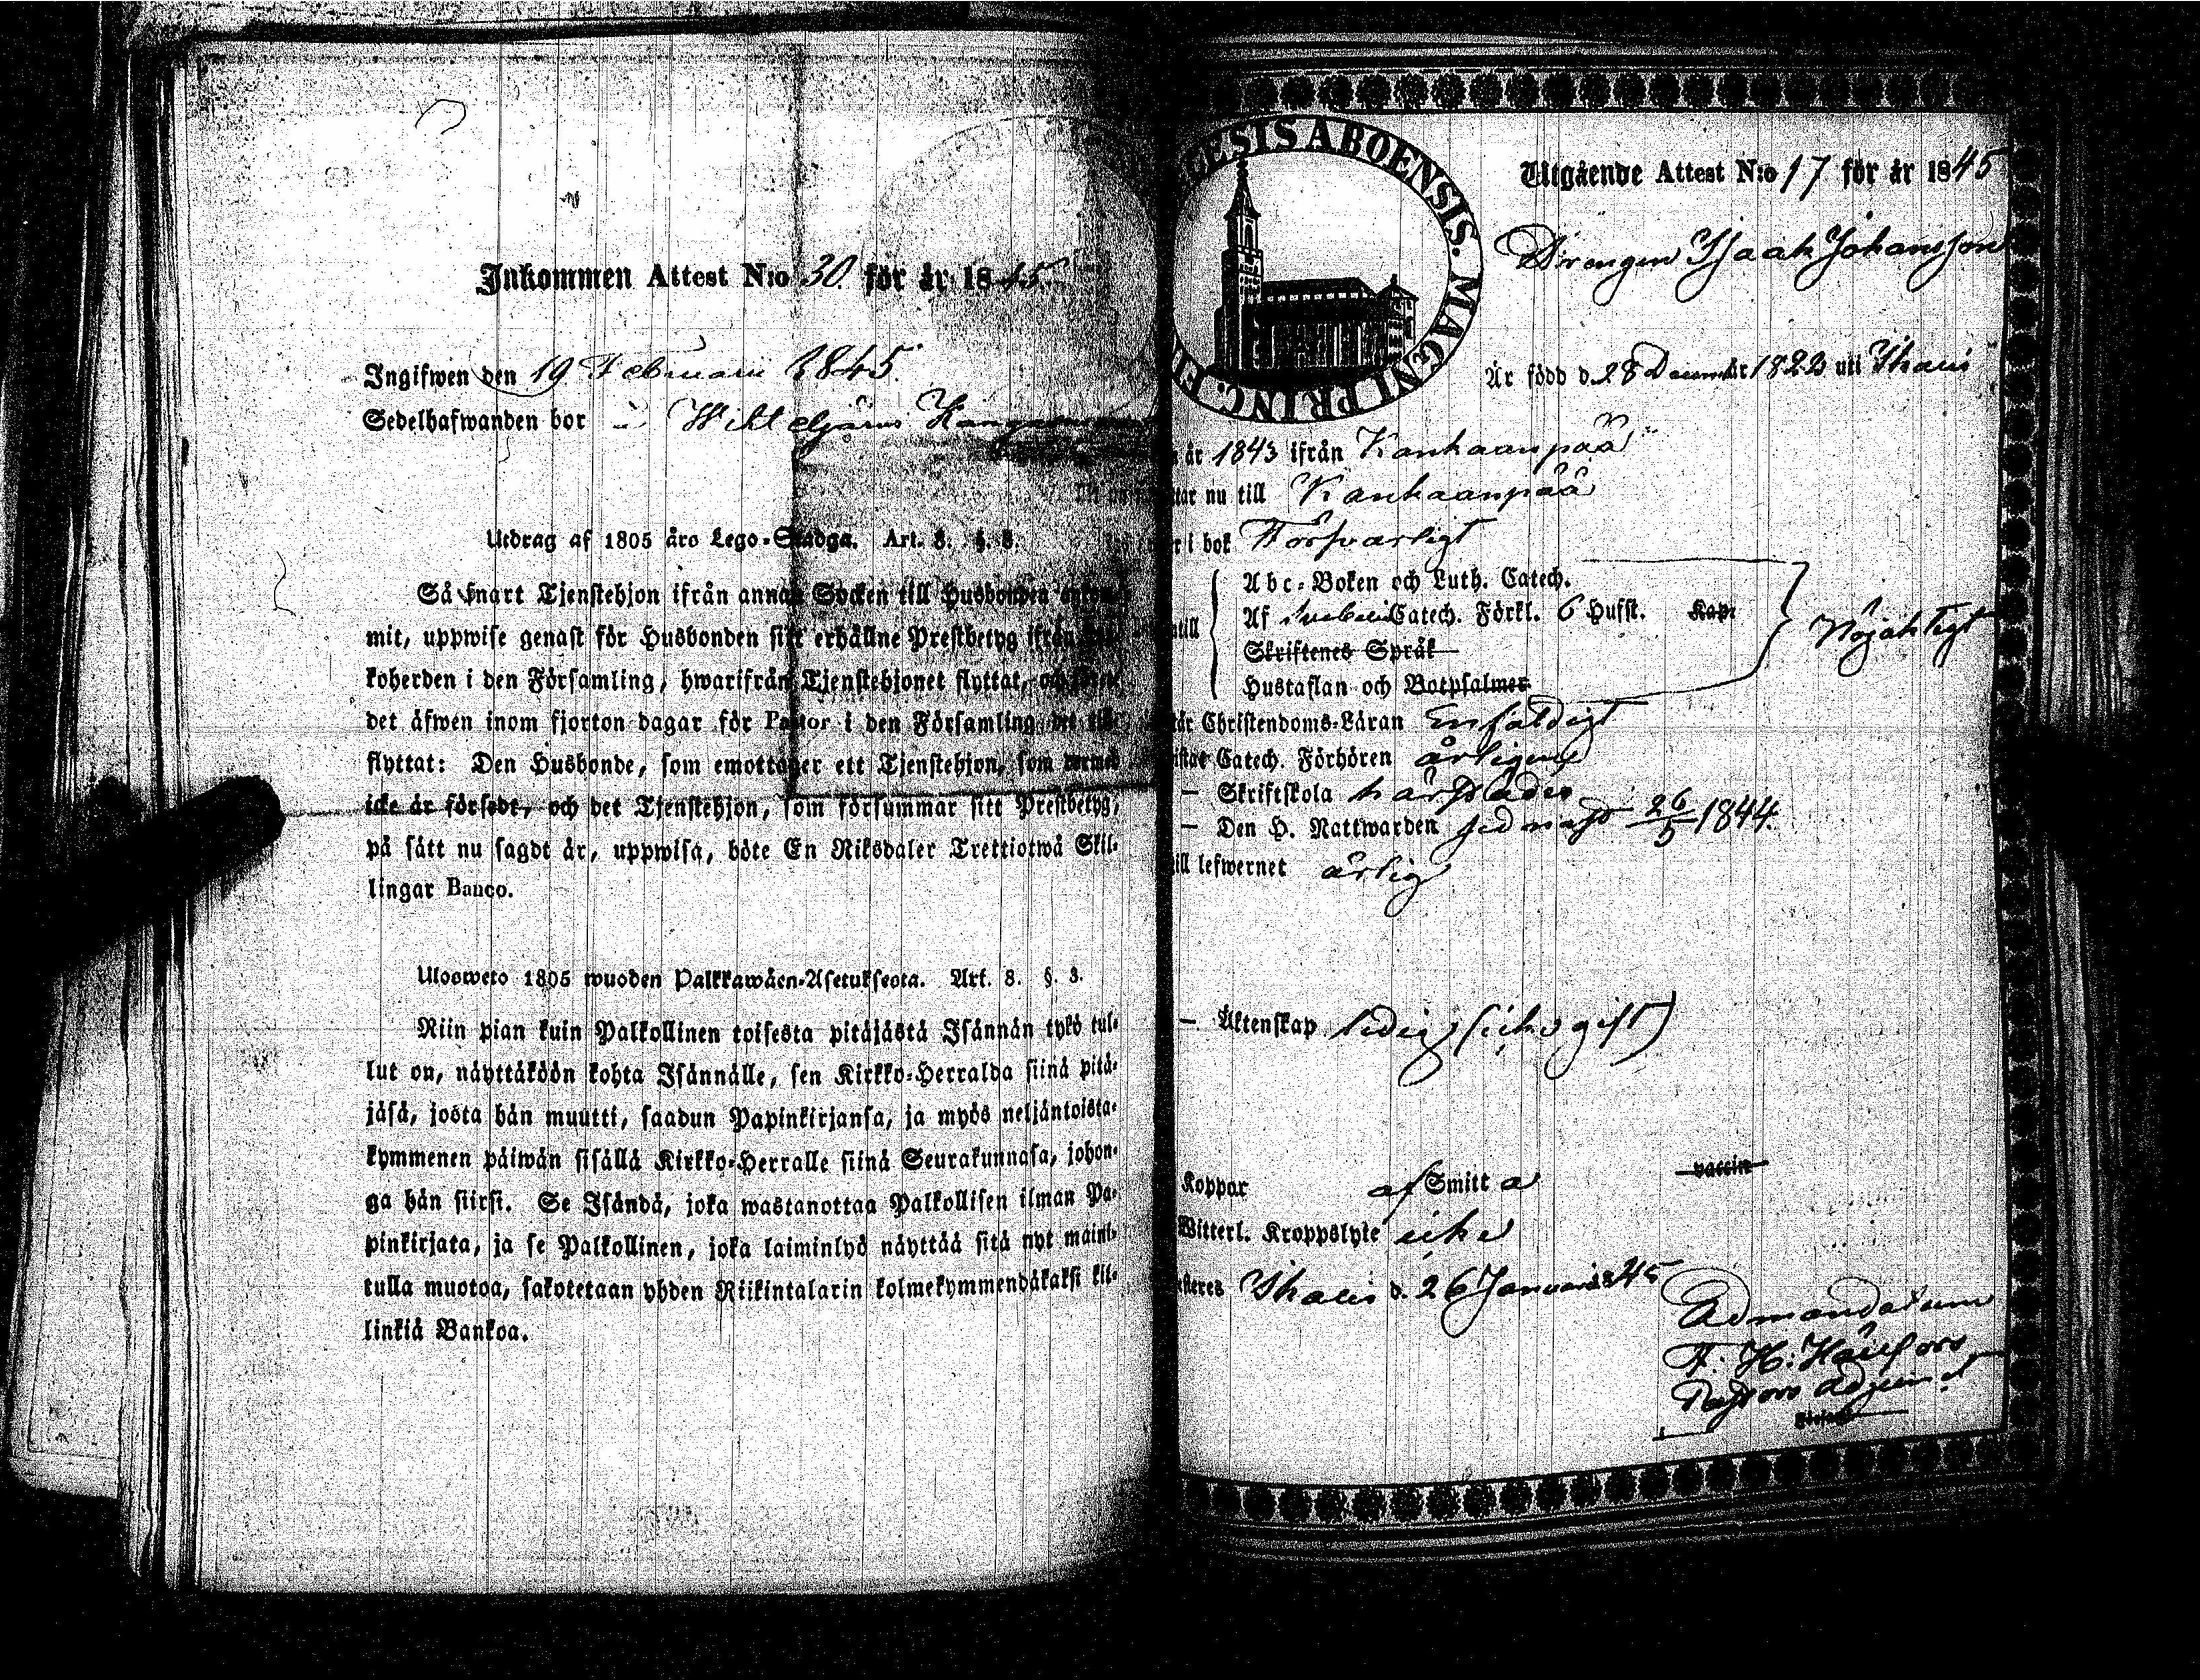 Inkommen Attest N:o 30. för år 1845.
Ingifwen den 19 Februarii 1845.
Sedelhafwanden bor i
Utdrag af 1805 års Lego-Stadga. Art. 8. §. 3.
Så snart Tjenstehjon ifrån annan Socken till Husbonden
mit, uppwise genast för Husbonden sitt erhållne Prestbetyg ifrån
koherden i den Församling, hwarifrån Tjenstehjonet flyttat, och
det äfwen inom fjorton dagar för Pastor i den Församling det
flyttat: Den Husbonde, som emottager ett Tjenstehjon, som
icke är försedt, och det Tjenstehjon, som försummar sitt Prestbetyg,
på sätt nu sagdt är, uppwisa, böte En Riksdaler Trettiotwå Skil-
lingar Banco.
Ulosweto 1805 wuoden Palkkawäen-Asetuksesta. Art. 8. §. 3.
Niin pian kuin Palkollinen toisesta pitäjästä Isännän tykö tul-
lut on, näyttäköön kohta Isännälle, sen Kirkko-Herralda siinä pitä-
jäsä, josta hän muutti, saadun Papinkirjansa, ja myös neljäntoista-
kymmenen päiwän sisällä Kirkko-Herralle siinä Seurakunnasa, johon-
ga hän siirsi. Se Isändä, joka wastanottaa Palkollisen ilman Pa-
pinkirjata, ja se Palkollinen, joka laiminlyö näyttää sitä nyt mainit-
tulla muotoa, sakotetaan yhden Riikintalarin kolmekymmendäkaksi kil-
linkiä Bankoa.
ESIS ABOENSIS. MAGNI PRINC. FI
Utgående Attest N:o 17 för år 1845
Drengen Isaak Johansson
Är född d. 28 Decemb. år 1822 uti Ikalis
år 1843 ifrån Kankaanpää
tar nu till Kankaanpää
r i bok Försvarligt
Abc-Boken och Luth. Catech.
Af Svebelii Catech. Förkl. 6 Hufst. Kap.
Skriftenes Språk
Hustaflan och Botpsalmer
Nöjaktigt
år Christendoms-Läran Enfaldigt
istat Catech. Förhören årligen
— Skriftskola härstädes
— Den H. Nattwarden sednast 26/5 1844.
ill lefwernet ärlig
— Äktenskap ledig (icke gift)
Koppor af Smitta vaccin
Witterl. Kroppslyte icke
steres Ikalis d. 26 Januarii 1845
Ad mandatum
Pastors adjunct